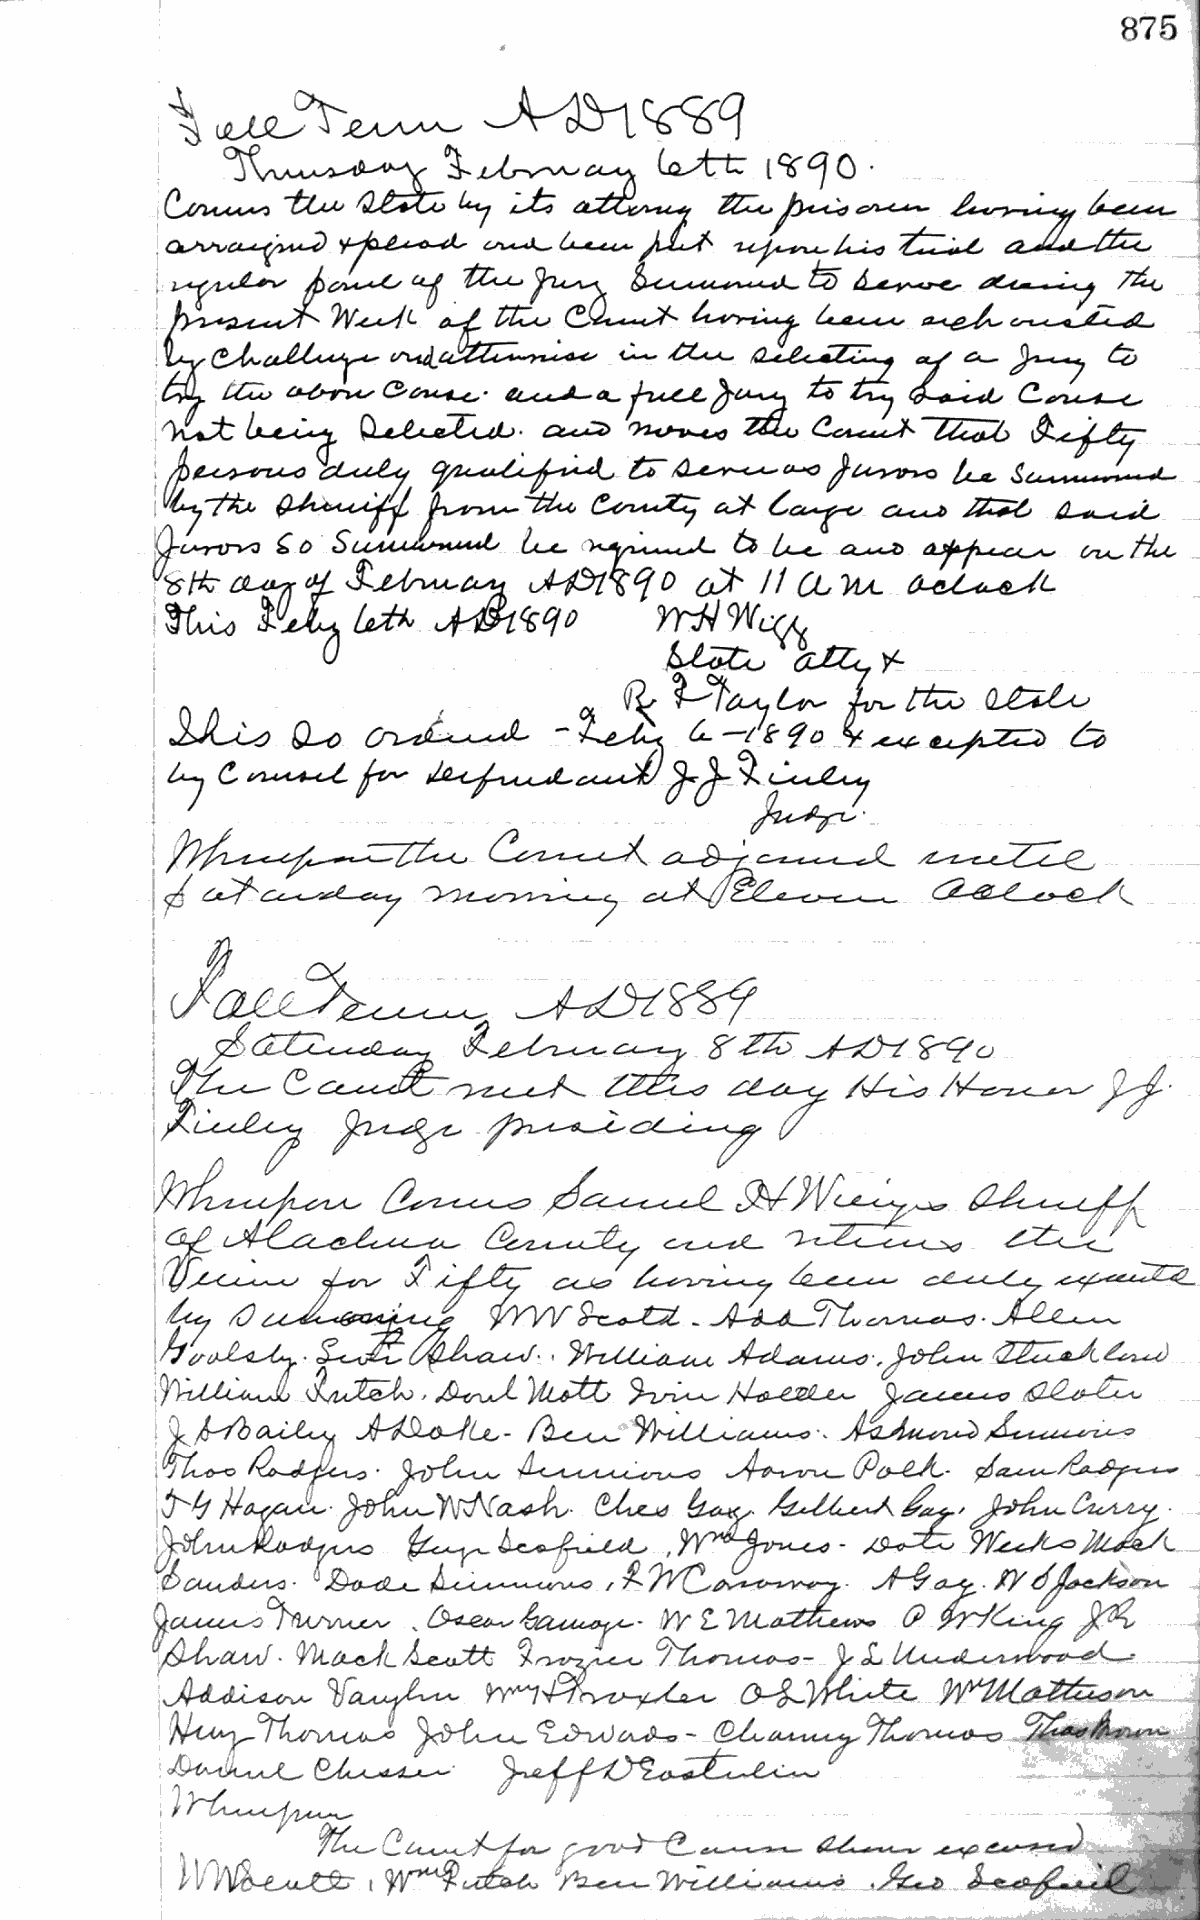 875
Fall Term AD 1889
Thursday February 6th 1890.
Comes the State by its attorney the prisoner having been
arraigned & plead and been put upon his trial and the
regular panel of the Jury Summoned to serve during the
present Week of the Court having been exhausted
by Challenge and attermise in the selecting of a Jury to
try the above Cause. and a full Jury to try said Cause
not being Selected. and moves the Court that Fifty
persons duly qualified to serve as Jurors be Summoned
by the Sheriff from the County at large and that said
Jurors So Summoned be required to be and appear on the
8th day of February AD 1890 at 11 a m oclock
This Feby 6th AD 1890 W H Wigg
State atty &
R F Taylor for the State
This so ordered - Feby 6 - 1890 & excepted to
by Counsel for defendant J J Finley
Judge.
Whereupon the Court adjourned until
Saturday morning at Eleven Oclock
Fall Term AD 1889
Saturday February 8th AD 1890
The Court met this day His Honor J J.
Finley Judge presiding
Whereupon Comes Samuel H Wienges Sheriff
of Alachua County and returns the
Venire for Fifty as having been duly executed
by Summoning W W Scott - Add Thomas. Allen
Goolsby. Shaw. William Adams. John Strickland
William Futch. Doul Mott Irvin Holder James Slater
J D Bailey A L Oake - Ben Williams. Ashmond Simmons
Thos Rodgers. John Simmons Aaron Polk. Sam Rodgers
T G Hagan. John W Nash. Ches Gay. Gilbert Gay. John Curry.
John Rodgers Geo Scofield, Wm Jones - Date Weeks Mack
Sanders. Dade Simmons, F W Caraway. A Gay. W S Jackson
James Turner. Oscar Gamage. W E Mathews P W King J R
Shaw. Mack Scott Frozier Thomas - J L Underwood.
Addison Vaughn Wm H Traxler O L White Wm Matheson
Henry Thomas John Edwards - Charney Thomas Thos Brown
Daniel Chesser Jeff D Easterlin
Whereupon
The Court for good Cause shown excused
W W Scott, Wm Futch Ben Williams, Geo Scofield